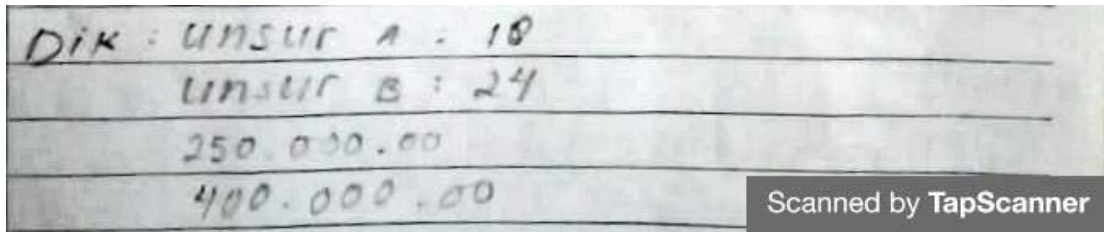 Dik : unsur A . 18
unsur B : 24
250.000.00
400.000.00
Scanned by TapScanner